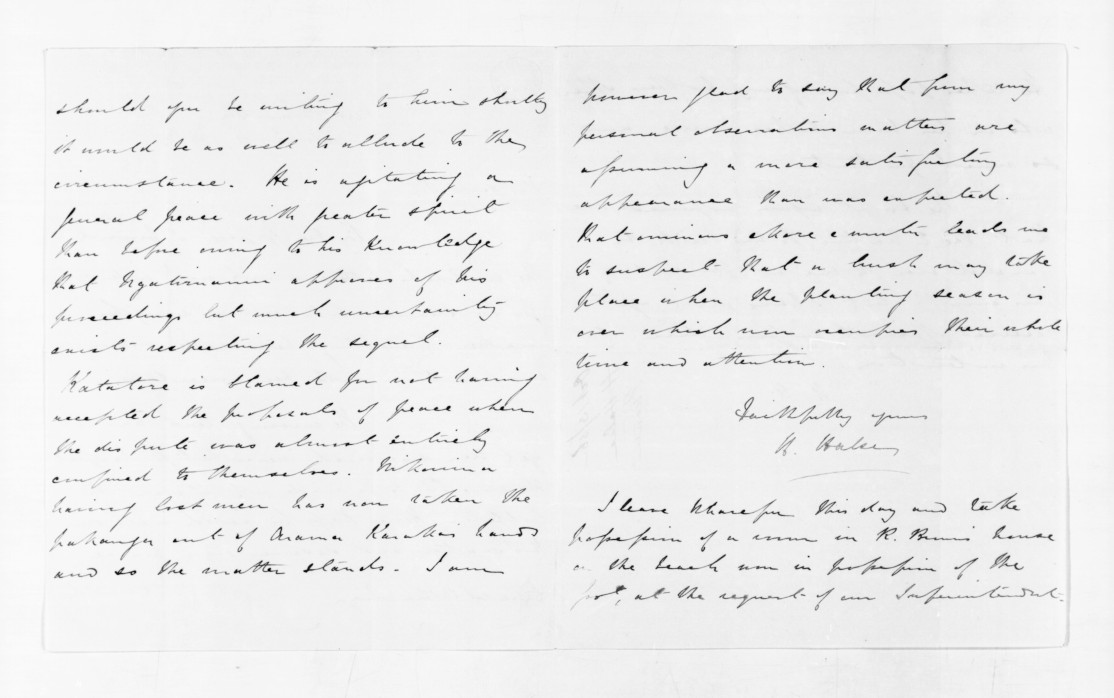 should you be writing to him shortly
it would be as well to allude to the
circumstance. He is agitating a
general peace with greater spirit
than before owing to his knowledge
that Ngatiruanui approves of his
proceedings but much uncertainty
exists respecting the sequel.
Katatore is blamed for not having
accepted the proposals of peace when
the dispute was almost entirely
confined to themselves. Nikorima
having lost men has now taken the
pakanga out of Arama Karaka's hands
and so the matter stands. I am
however glad to say that from my
personal observations matters are
assuming a more satisfactory
appearance than was expected.
that ominous leads me
to suspect that a brush may take
place when the planting season is
over which now occupies their whole
time and attention.
Faithfully yours
H. Halse
I leave this day and take
possession of a room in R. house
on the beach now in possession of the
govt, at the request of our Superintendent-